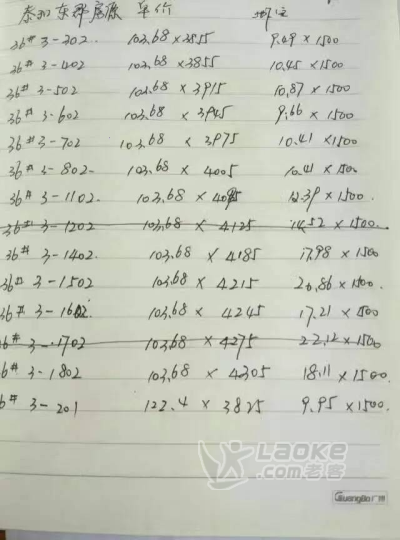 泰和东郡房源 单价 地室
36# 3-302. 103.68 × 3855 9.49 × 1500
36# 3-402 103.68 × 3855 10.45 × 1500
36# 3-502 103.68 × 3915 10.87 × 1500
36# 3-602 103.68 × 3945 9.66 × 1500
36# 3-702 103.68 × 3975 10.41 × 1500
36# 3-802. 103.68 × 4005 10.41 × 1500
36# 3-1102. 103.68 × 4095 12.39 × 1500.
36# 3-1202 103.68 × 4125 14.52 × 1500.
36# 3-1402. 103.68 × 4185 17.98 × 1500
36# 3-1502 103.68 × 4215 20.86 × 1500.
36# 3-1602. 103.68 × 4245 17.21 × 1500
6# 3-1702 103.68 × 4275 22.12 × 1500.
6# 3-1802 103.68 × 4305 18.11 × 1500.
6# 3-201 122.4 × 3825 9.95 × 1500.
LAOKE
.com老客
GuangBo广博